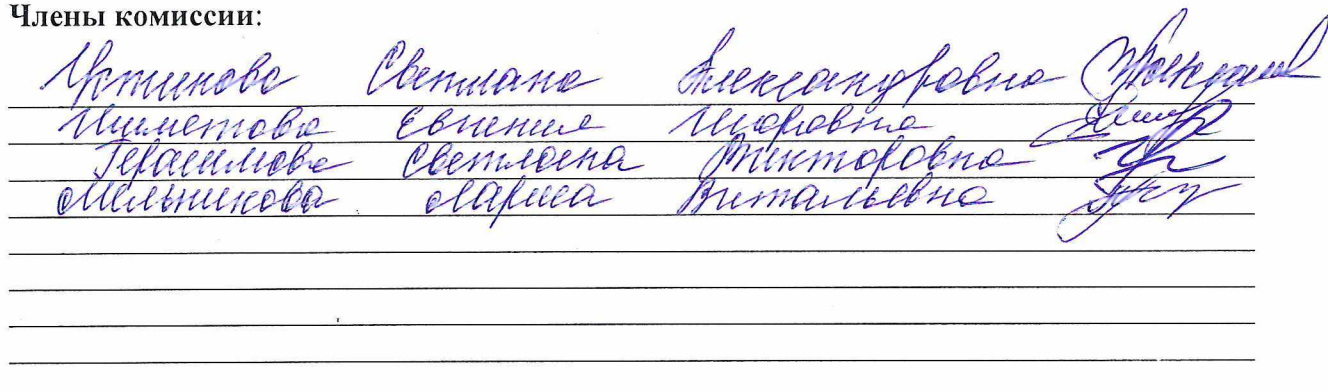 Члены комиссии:
Устинова Светлана Александровна
Евгения Игоровна
Герасимова Светлана Викторовна
Мельникова Лариса Витальевна